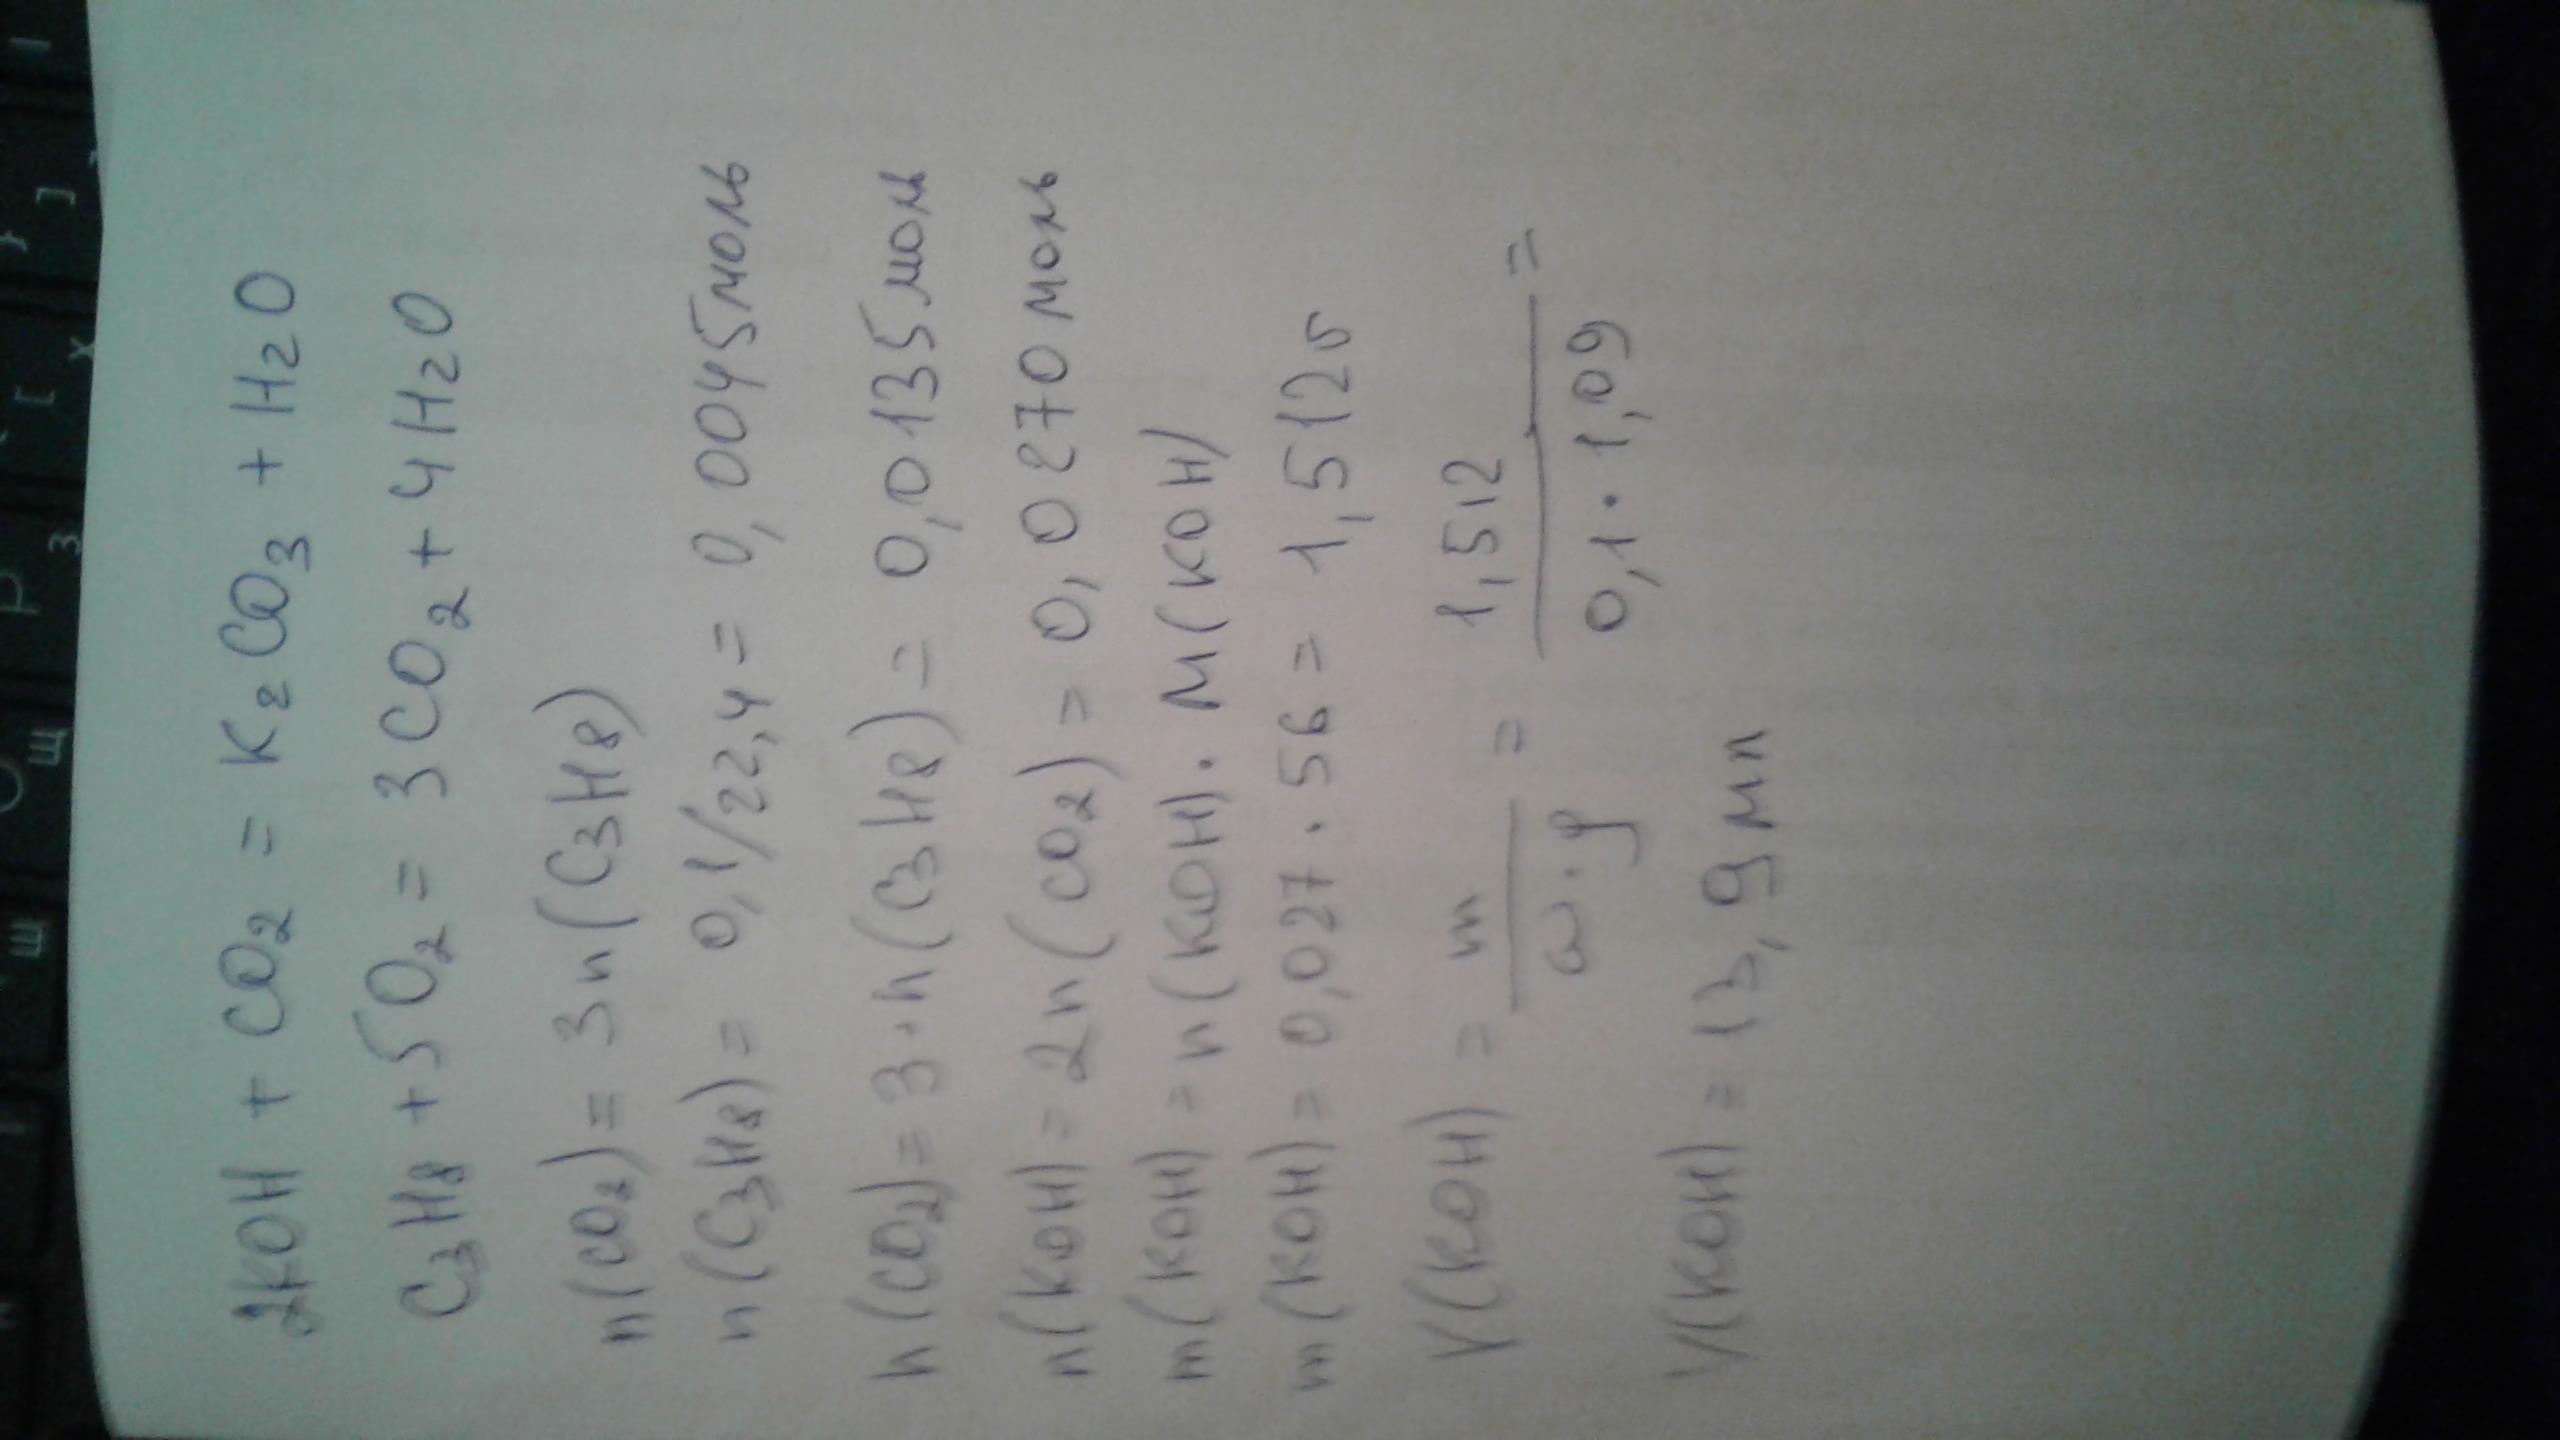 2KOH + CO2 = K2CO3 + H2O
C3H8 + 5O2 = 3CO2 + 4H2O
n(CO2) = 3n(C3H8)
n(C3H8) = 0,1/22,4 = 0,0045 моль
n(CO2) = 3·n(C3H8) = 0,0135 моль
n(KOH) = 2n(CO2) = 0,0270 моль
m(KOH) = n(KOH)·M(KOH)
m(KOH) = 0,027·56 = 1,512 г
V(KOH) = m / ω·ρ = 1,512 / 0,1·1,09 =
V(KOH) = 13,9 мл